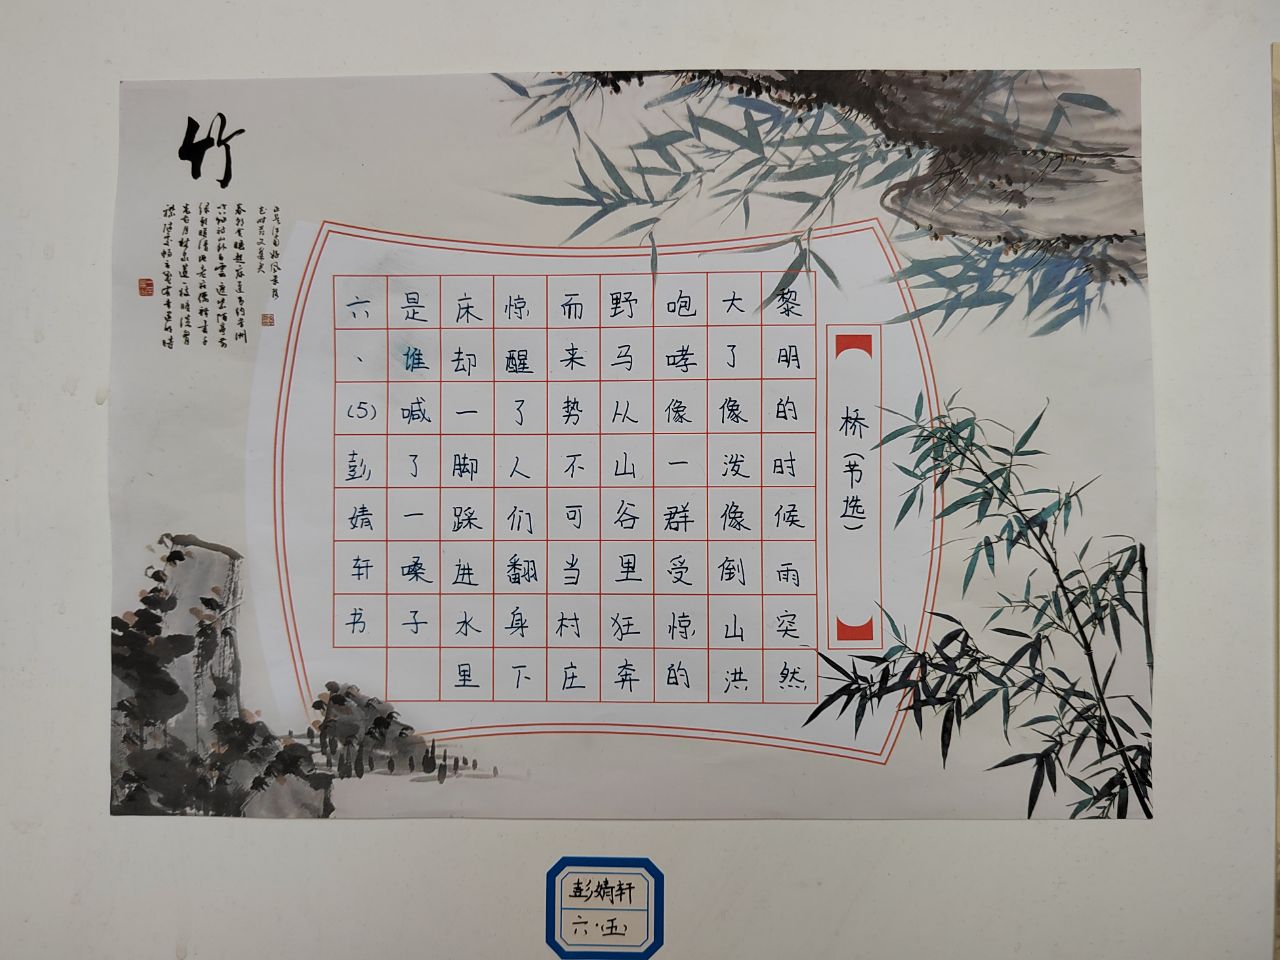 桥(节选)
黎明的时候雨突然
大了像泼像倒山洪
咆哮像一群受惊的
野马从山谷里狂奔
而来势不可当村庄
惊醒了人们翻身下
床却一脚踩进水里
是谁喊了一嗓子
六、(5)彭婧轩书
竹
彭婧轩
六·(五)